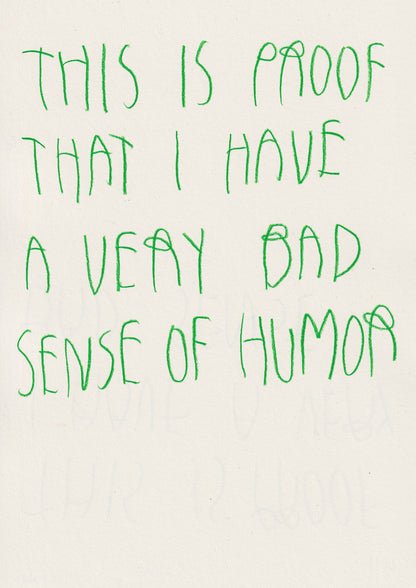 THIS IS PROOF
THAT I HAVE
A VERY BAD
SENSE OF HUMOR